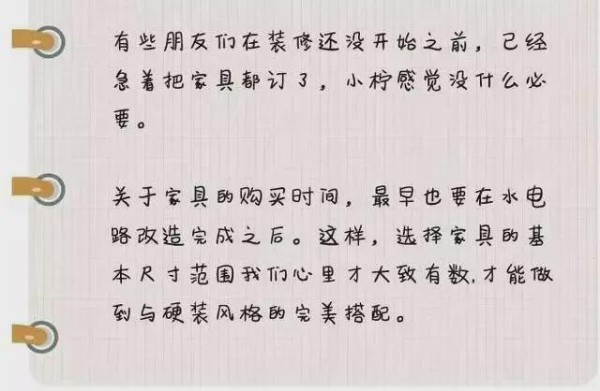 有些朋友们在装修还没开始之前，已经
急着把家具都订了，小柠感觉没什么必
要。
关于家具的购买时间，最早也要在水电
路改造完成之后。这样，选择家具的基
本尺寸范围我们心里才大致有数,才能做
到与硬装风格的完美搭配。